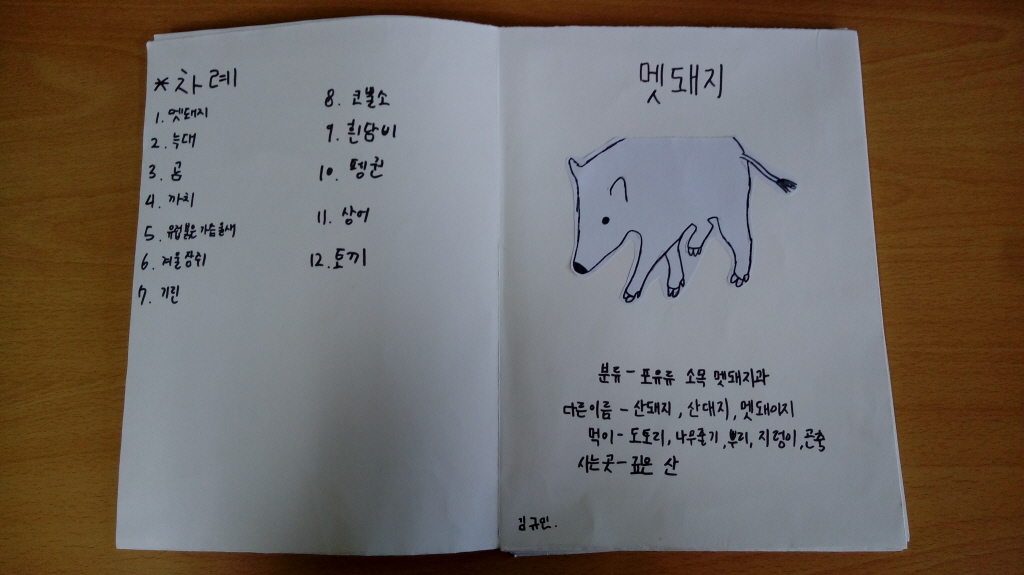 *차례
1. 멧돼지
2. 늑대
3. 곰
4. 까치
5. 유럽붉은가슴울새
6. 겨울잠쥐
7. 기린
8. 코뿔소
9. 흰담비
10. 펭귄
11. 상어
12. 토끼
멧돼지
분류 - 포유류 소목 멧돼지과
다른이름 - 산돼지, 산대지, 멧돼이지
먹이 - 도토리, 나무줄기, 뿌리, 지렁이, 곤충
사는곳 - 깊은 산
김규민.